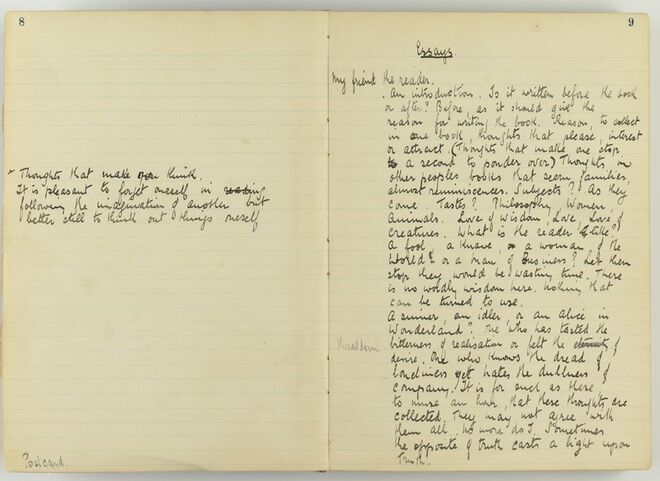 8
* Thoughts that make one think.
It is pleasant to forget oneself in reading
following the imagination of another but
better still to think out things oneself
Postcard.
9
Essays.
My friend the reader.
. An introduction. Is it written before the book
or after? Before, as it should give the
reason for writing the book. Reason, to collect
in one book, thoughts that please, interest
or attract. (Thoughts that make one stop
a second to ponder over) Thoughts in
other peoples books that seem familiar
almost reminiscences. Subjects? As they
come. Tastes? Philosophy, Women,
Animals. Love of Wisdom, Love, Love of
creatures. What is the reader like?
A fool, a knave, or a woman, of the
World? or a man of Business? Let them
stop they would be wasting time. There
is no worldly wisdom here. Nothing that
can be turned to use.
A sinner, an idler, or an Alice in
Wonderland? One who has tasted the
bitterness of realisation or felt the of
desire. One who knows the dread of
loneliness yet hates the dullness of
company. It is for such as these
to muse an hour, that these thoughts are
collected. They may not agree with
them all. No more do I. Sometimes
the opposite of truth casts a light upon
Truth.